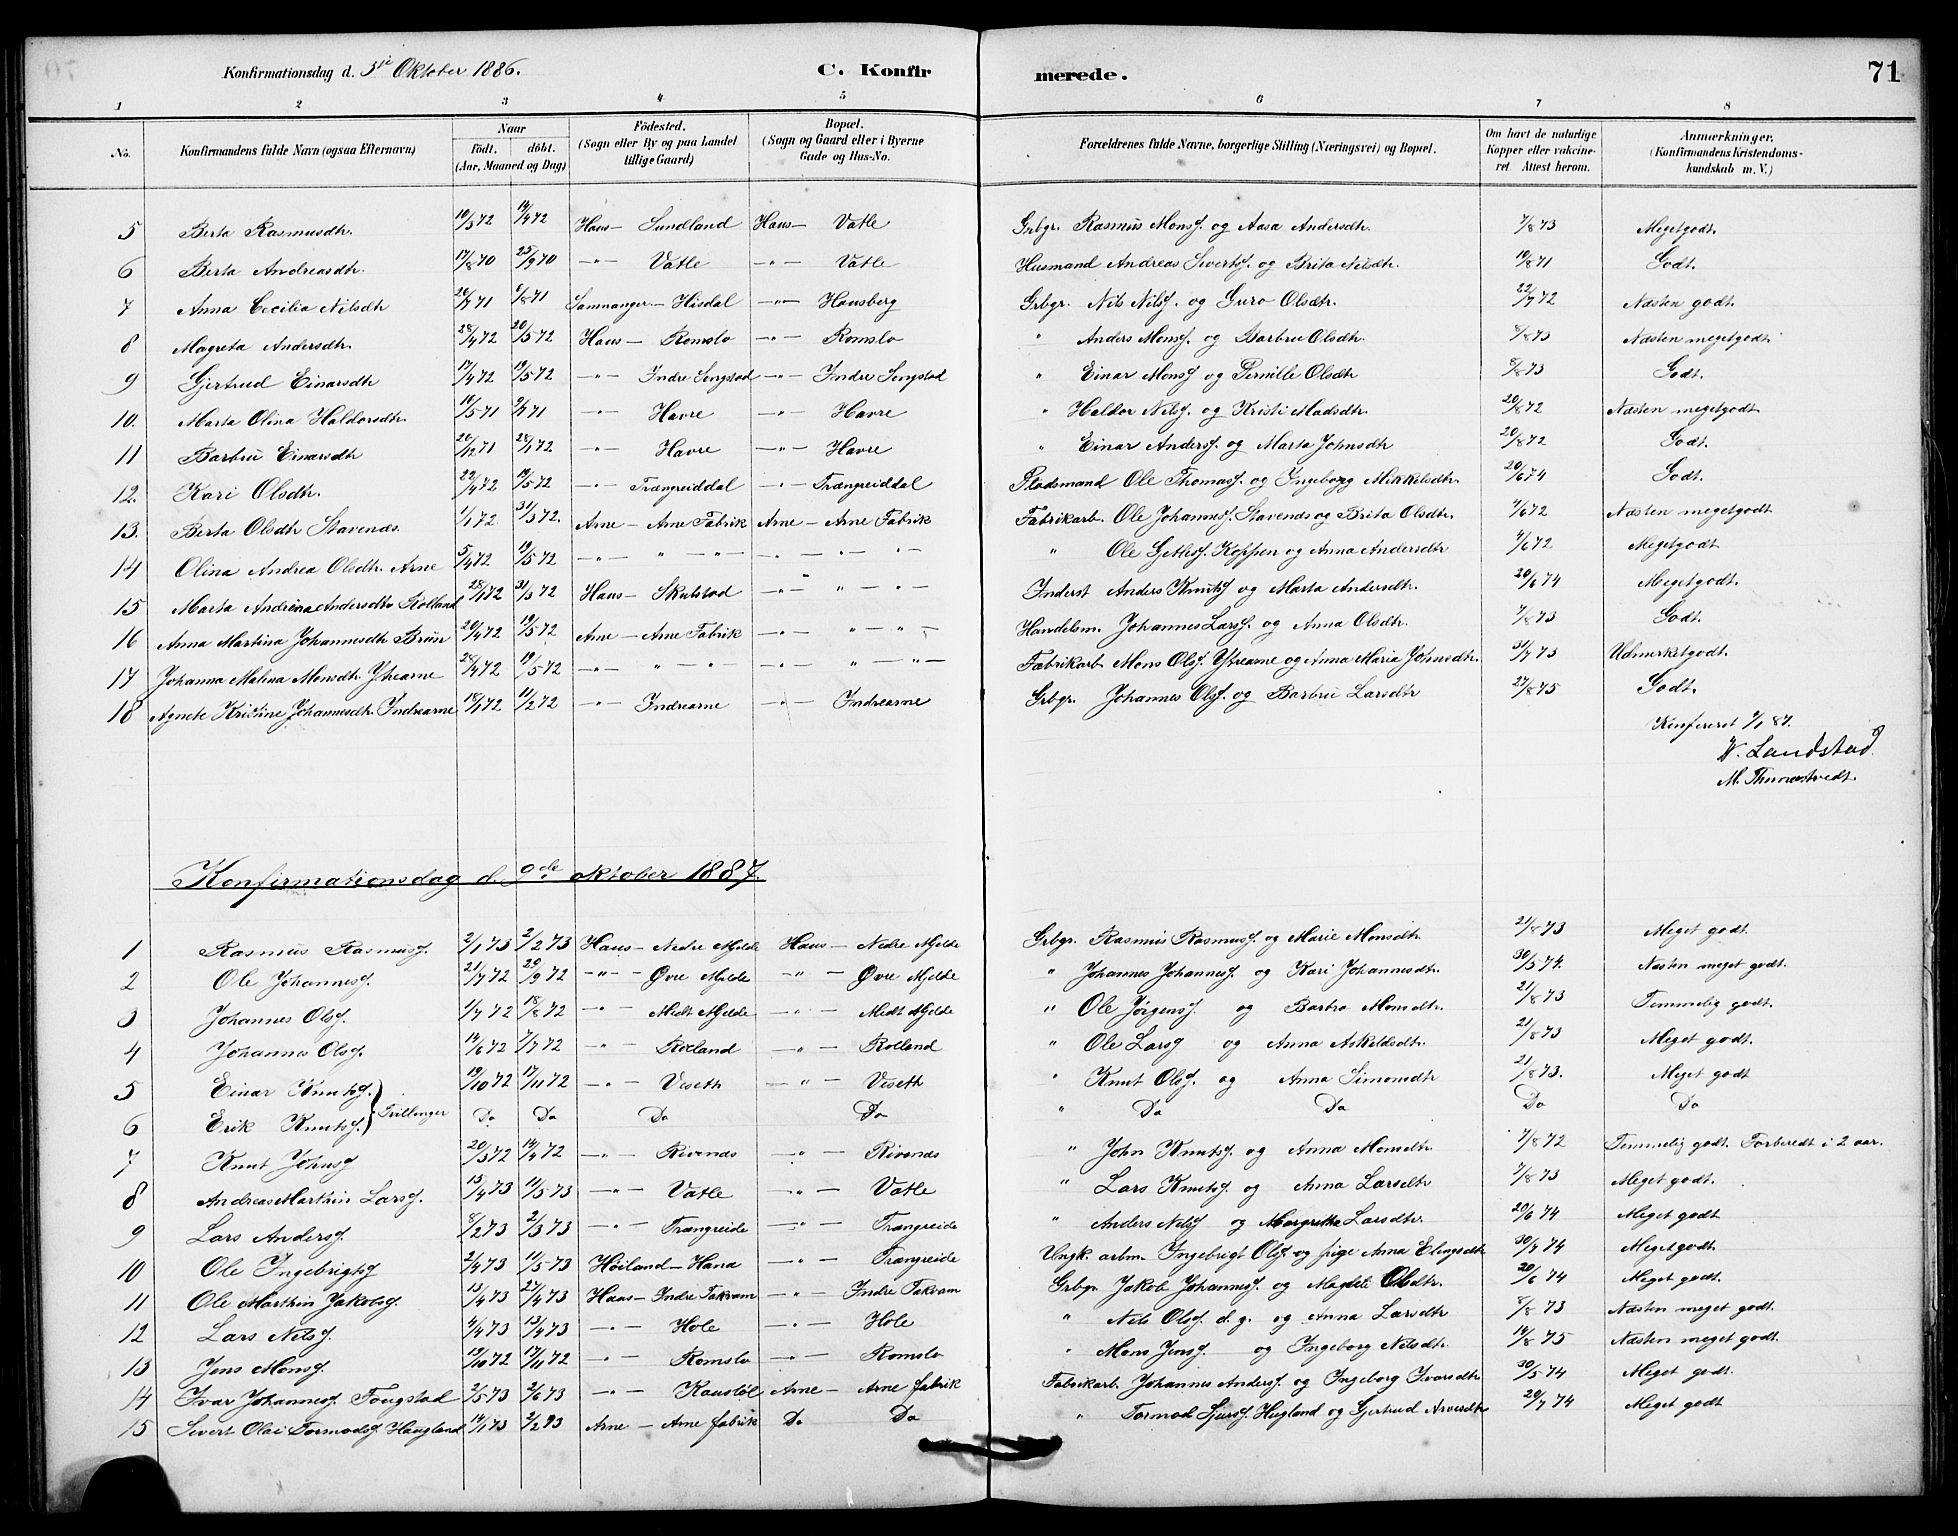 Konfirmationsdag d. 3die Oktober 1886. C. Konfirmerede. 71
1 2 3 4 5 6 7 8
No. Konfirmandens fulde Navn (ogsaa Efternavn) Naar födt. döbt. (Aar, Maaned og Dag) Födested. (Sogn eller By og paa Landet tillige Gaard) Bopæl. (Sogn og Gaard eller i Byerne Gade og Hus-No. Forældrenes fulde Navne, borgerlige Stilling (Næringsvei) og Bopæl. Om havt de naturlige Kopper eller vakcineret. Attest herom. Anmærkninger, (Konfirmandens Kristendomskundskab m. V.)
5 Berta Rasmusdtr. 10/3 72 14/4 72 Haus — Sundland Haus — Vatle Grbgr. Rasmus Monss. og Aasa Andersdtr. 7/8 73 Megetgodt.
6 Berta Andreasdtr. 17/8 70 25/9 70 —"— Vatle —"— Vatle Husmand Andreas Sivertss. og Brita Nilsdtr. 10/8 71 Godt.
7 Anna Cecilia Nilsdtr 26/7 71 6/8 71 Samnanger — Hisdal —"— Hausberg Grbgr. Nils Nilss. og Guro Olsdtr. 22/7 72 Næsten godt.
8 Magreta Andersdtr. 28/4 72 20/5 72 Haus — Romslo —"— Romslo " Anders Monss. og Barbru Olsdtr. 8/8 73 Næsten megetgodt.
9 Gjertrud Einarsdtr 17/4 72 19/5 72 —"— Indre Songstad —"— Indre Songstad " Einar Monss og Pernille Olsdtr 8/8 73 Godt.
10. Marta Olina Haldorsdtr. 16/5 71 2/7 71 —"— Havre —"— Havre " Haldor Nilss. og Kristi Madsdtr. 20/8 72 Næsten megetgodt
11 Barbru Einarsdtr 26/12 71 28/1 72 —"— Havre —"— Havre " Einar Anderss. og Marta Johnsdtr 20/8 72 Godt.
12. Kari Olsdtr. 22/4 72 19/5 72 —"— Trængreiddal —"— Trængreiddal Pladsmand Ole Thomass. og Ingeborg Mikkelsdtr. 20/6 74 Godt.
13. Berta Olsdtr Stavenes. 1/1 72 31/3 72. Arne — Arne Fabrik Arne — Arne Fabrik Fabrikarb. Ole Johanness. Stavenes og Brita Olsdtr. 4/6 72 Næsten megetgodt
14 Olina Andrea Olsdtr. Arne 5/4 72 19/5 72 —"— " —"— —"— " —"— " Ole Gjetless. Koppen og Anna Andersdtr 4/6 72 Megetgodt
15 Marta Andrina Andersdtr Rolland 28/1 72 31/3 72 Haus — Skulstad —"— " —"— Inderst Anders Knutss og Marta Andersdtr. 20/6 74 Megetgodt.
16 Anna Martina Johannesdtr Bruin 20/4 72 19/5 72 Arne — Arne Fabrik —"— " —"— Handelsm. Johannes Larss. og Anna Olsdtr. 7/8 73 Godt.
17 Johanna Malina Monsdtr. Ytrearne 28/4 72 19/5 72 —"— " —"— —"— " —"— Fabrikarb Mons Olss. Ytrearne og Anna Maria Johnsdtr. 31/7 73 Udmerketgodt.
18 Agnete Kristine Johannesdtr. Indrearne 18/1 72 11/2 72 —"— Indrearne —"— Indrearne Grbgr. Johannes Olss. og Barbru Larsdtr 27/8 75 Godt.
Konfereret 7/1 87.
W. Landstad.
M. Thunestvedt.
Konfirmationsdag d. 9de oktober 1887.
1 Rasmus Rasmuss. 2/1 73 2/2 73 Haus — Nedre Mjelde Haus — Nedre Mjelde Grbgr. Rasmus Rasmuss. og Marie Monsdtr. 21/8 73 Meget godt.
2 Ole Johanness. 21/7 72 29/9 72 —"— Øvre Mjelde " — Øvre Mjelde " Johannes Johanness. og Kari Johannesdtr. 30/5 74. Næsten meget godt.
3 Johannes Olss. 1/7 72 18/8 72 —"— Midt Mjelde —"— Midt Mjelde " Ole Jørgenss. og Barbro Monsdtr. 21/8 73 Temmelig godt.
4 Johannes Olss. 14/6 72 7/7 72 —"— Rolland —"— Rolland " Ole Larss og Anna Askeldsdtr. 21/8 73 Meget godt.
5 Einar Knutss. } Tvillinger 19/10 72 17/11 72 —"— Viseth —"— Viseth " Knut Olss. og Anna Simonsdtr 21/8 73. Meget godt
6 Erik Knutss. } Do Do Do Do " Do Do Do Do
7 Knut Johnss 20/3 72 14/4 72 —"— Rivenes —"— Rivenes " John Knutss. og Anna Monsdtr. 7/8 72 Temmelig godt. Forberedt i 2 aar.
8 Andreas Marthin Larss. 13/4 73 11/5 73 —"— Vatle —"— Vatle " Lars Knutss. og Anna Larsdtr 7/8 73 Meget godt.
9 Lars Anderss. 8/2 73 2/3 73 —"— Trængreide —"— Trængreide " Anders Nilss og Margretha Larsdtr. 20/6 74 Meget godt
10 Ole Ingebrigtss 2/4 73 11/5 73 Høiland — Hana —"— Trængreide Ungk. arbm. Ingebrigt Olss. og pige Anna Elingsdtr 30/7 74 Megetgodt.
11 Ole Marthin Jakobss. 13/4 73 27/4 73 Haus — Indre Takvam —"— Indre Takvam Grbgr. Jakob Johanness. og Magdele Olsdtr. 20/6 74 Meget godt
12 Lars Nilss. 4/4 73 13/4 73 —"— Hole —"— Hole " Nils Olss. d. y. og Anna Larsdtr 8/8 73 Næsten meget godt.
13 Jens Monss. 19/10 72 17/11 72 —"— Romslo —"— Romslo " Mons Jenss. og Ingeborg Nilsdtr. 14/8 75 Næsten meget godt.
14 Ivar Johanness. Fongstad 2/5 73 2/6 73 —"— Kausløl Arne — Arne fabrik Fabrikarb. Johannes Anderss. og Ingeborg Ivarsdtr 30/5 74 Meget godt.
15 Sivert Olai Tormodss. Haugland 14/1 73 2/2 93 Arne — Arne fabrik Do Do " Tormod Sjurss. Hugland og Gjertrud Arvesdtr 20/7 74 Meget godt